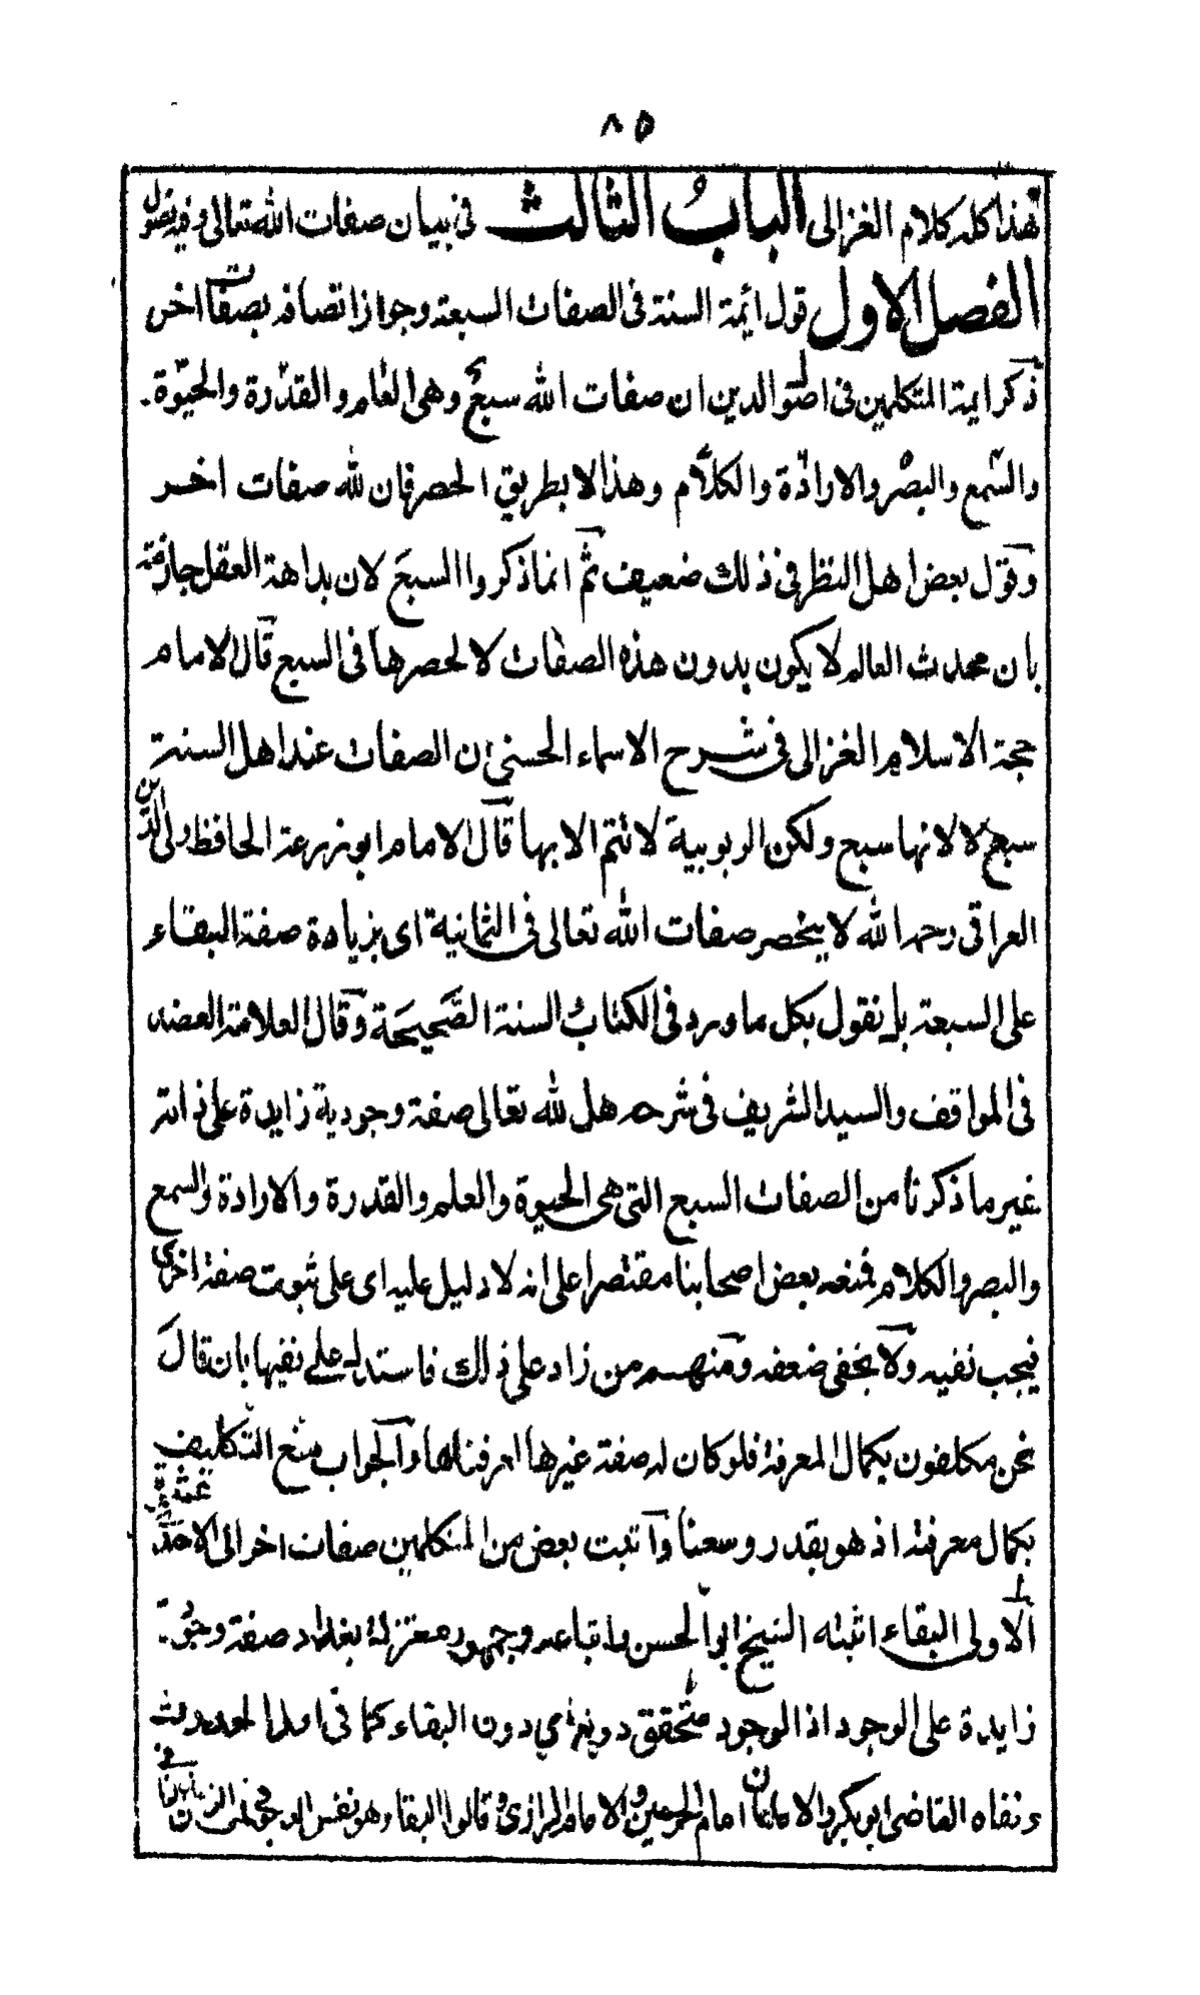 ٨٥
هذا كله كلام الغزالى الباب الثالث فى بيان صفات الله تعالى وفيه فصول
الفصل الاول قول ائمة السنة فى الصفات السبعة وجواز اتصافه بصفات اخر
ذكر ايمة المتكلمين فى اصول الدين ان صفات الله سبع وهى العلم و القدرة والحيوة
والسمع والبصر والارادة والكلام وهذا لا بطريق الحصر فان لله صفات اخر
وقول بعض اهل النظر فى ذلك ضعيف ثم انما ذكروا السبع لان بداهة العقل جازمة
بان محدث العالم لا يكون بدون هذه الصفات لا لحصرها فى السبع قال الامام
حجة الاسلام الغزالى فى شرح الاسماء الحسنى ان الصفات عند اهل السنة
سبع لا لانها سبع ولكن الربوبية لا تتم الا بها قال الامام ابو زرعة الحافظ ولى الدين
العراقى رحمه الله لا ينحصر صفات الله تعالى فى الثمانية اى بزيادة صفة البقاء
على السبعة بل نقول بكل ما ورد فى الكتاب السنة الصحيحة وقال العلامة العضد
فى المواقف والسيد الشريف فى شرحه هل لله تعالى صفة وجودية زايدة على ذاته
غير ما ذكرنا من الصفات السبع التى هى الحيوة والعلم والقدرة والارادة والسمع
والبصر والكلام فمنعه بعض اصحابنا مقتصرا على انه لا دليل عليه اى على ثبوت صفة اخرى
فيجب نفيه ولا يخفى ضعفه ومنهم من زاد على ذلك فاستدل على نفيها بان قال
نحن مكلفون بكمال المعرفة فلو كان له صفة غيرها لعرفناها والجواب منع التكليف
بكمال معرفته اذ هو بقدر وسعنا واثبت بعض من المتكلمين صفات اخر الى الاحد عشرة
الاولى البقاء اثبته الشيخ ابو الحسن واتباعه وجمهور معتزلة بغداد صفة وجودية
زايدة على الوجود اذ الوجود متحقق دون البقاء كما فى اول الحدوث
ونفاه القاضى ابو بكر والامامان امام الحرمين والامام الرازى وقالوا البقاء هو نفس الوجود فى الزمان الثانى